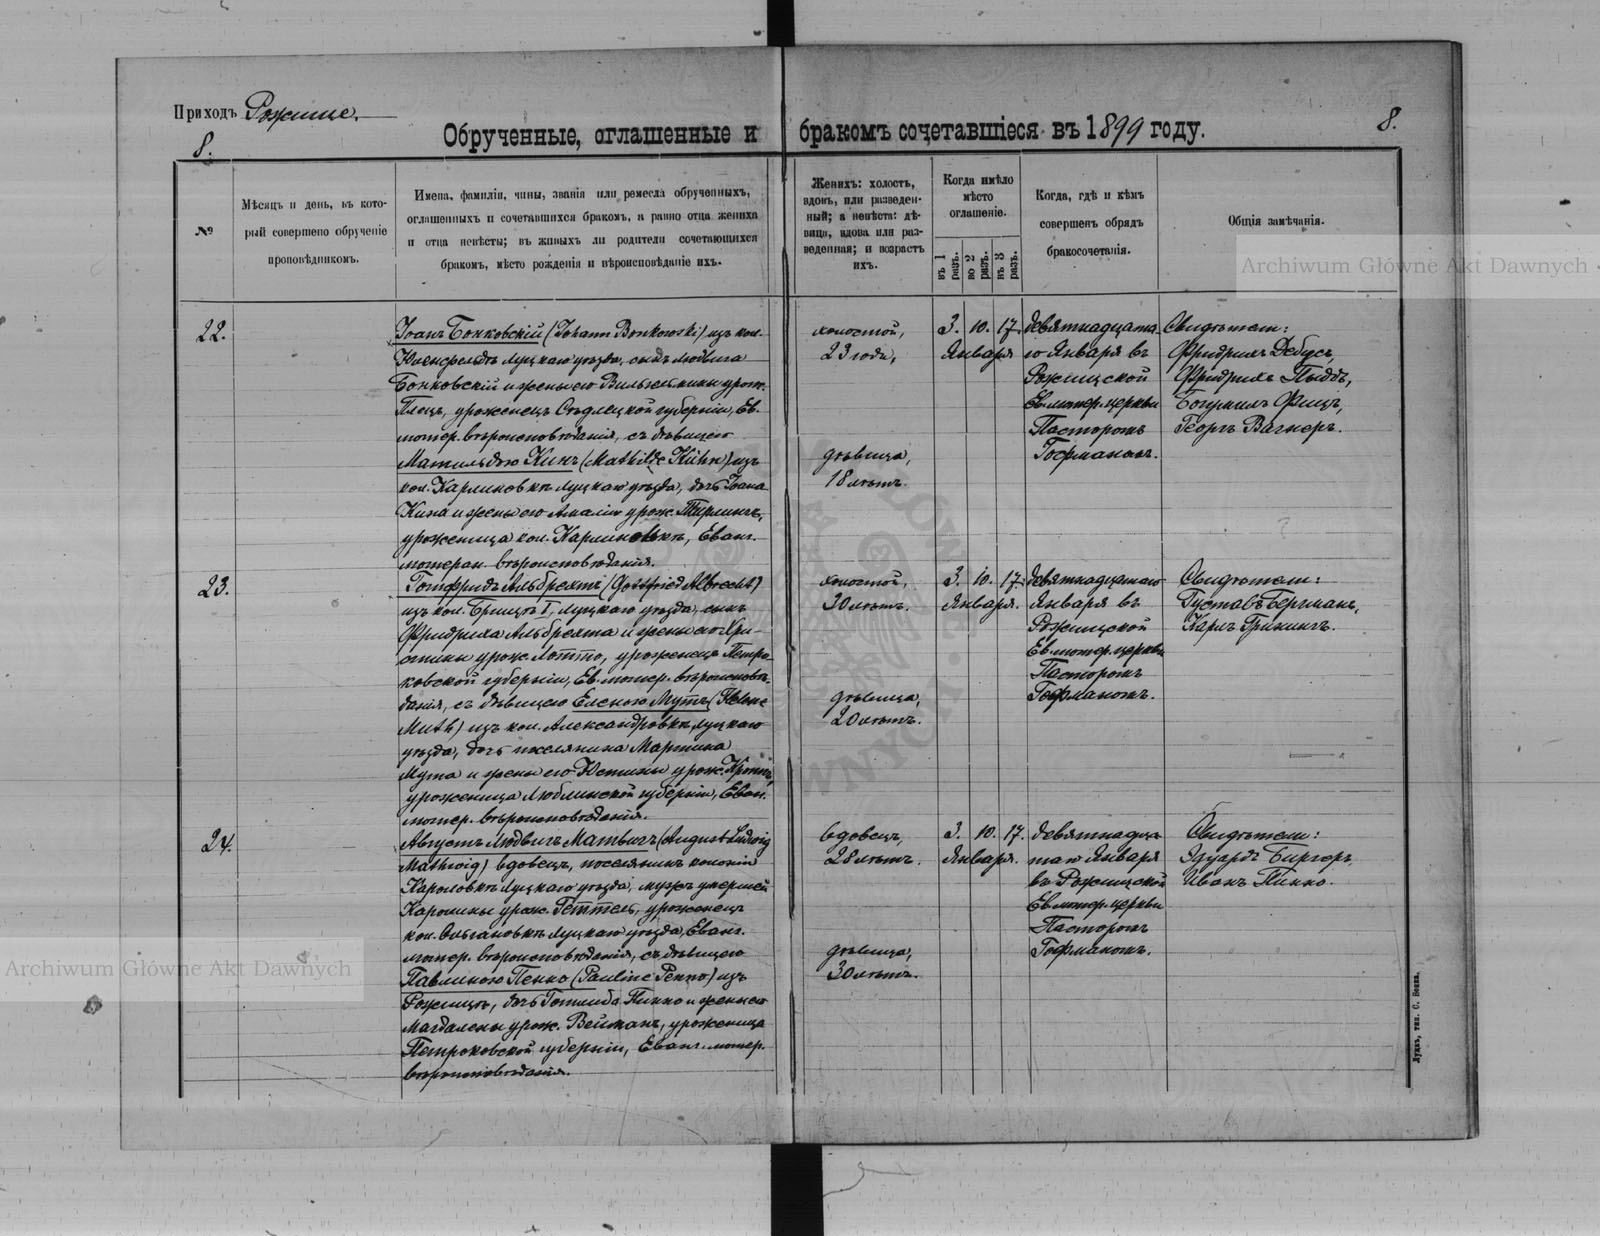 Приходъ Рожище.
8.
Обрученные, оглашенные и бракомъ сочетавшіеся въ 1899 году.
8.
№
Мѣсяцъ и день, въ кото-
рый совершено обрученіе
проповѣдникомъ.
Имена, фамиліи, чины, званія или ремесла обрученныхъ,
оглашенныхъ и сочетавшихся бракомъ, а равно отца жениха
и отца невѣсты; въ живыхъ ли родители сочетающихся
бракомъ, мѣсто рожденія и вѣроисповѣданіе ихъ.
Женихъ: холостъ,
вдовъ, или разведен-
ный; а невѣста: дѣ-
вица, вдова или раз-
веденная; и возрастъ
ихъ.
Когда имѣло
мѣсто
оглашеніе.
въ 1 разъ.
во 2 разъ.
въ 3 разъ.
Когда, гдѣ и кѣмъ
совершенъ обрядъ
бракосочетанія.
Общія замѣчанія.
22.
Іоанъ Бонковскій (Johann Bonkowski) изъ кол.
Клейнфельдъ Луцкаго уѣзда, сынъ Людвига
Бонковскій и жены его Вильгельмины урож.
уроженецъ Сѣдлецкой губерніи, Ев.
лютер. вѣроисповѣданія, съ дѣвицею
Матильдою Кинъ (Mathilde Kühn) изъ
кол. Карлиновкѣ Луцкаго уѣзда, дочь Іоана
Кина и жены его Амаліи урож.
уроженица кол. Карлиновкѣ, Еванг.
лютеран. вѣроисповѣданія.
холостой,
23 года,
дѣвица,
18 лѣтъ.
3. 10. 17.
Января
девятнадцата
го Января въ
Рожищской
Ев. лютер. церкви
Пасторомъ
Гофманомъ.
Свидѣтели:
Фридрихъ Дебусъ,
Фридрихъ Пыддъ,
Богумилъ Фицъ,
Георгъ Вагнеръ.
23.
Готфридъ Альбрехтъ (Gottfried Albrecht)
изъ кол. Брищѣ I, Луцкаго уѣзда, сынъ
Фридриха Альбрехта и жены его Хри-
стины урож. Лотто, уроженецъ Петро-
ковской губерніи, Ев. лютер. вѣроисповѣ-
данія, съ дѣвицею Еленою Мутъ (Helene
Muth) изъ кол. Александровкѣ Луцкаго
уѣзда, дочь поселянина Мартина
Мута и жены его Юстины урож.
уроженица Люблинской губерніи, Еван.
лютер. вѣроисповѣданія.
холостой,
30 лѣтъ.
дѣвица,
20 лѣтъ.
3. 10. 17.
Января.
девятнадцатаго
Января въ
Рожищской
Ев. лютер. церкви
Пасторомъ
Гофманомъ.
Свидѣтели:
Густавъ Бергманъ,
Карлъ Грининъ.
24.
Августъ Людвигъ Матвигъ (August Ludwig
Mathwig) вдовецъ, поселянинъ колоніи
Кароловкѣ Луцкаго уѣзда, мужъ умершей
Каролины урож. Геттель, уроженецъ
кол. Ольгановкѣ Луцкаго уѣзда, Еванг.
лютер. вѣроисповѣданія, съ дѣвицею
Павлиною Пенно (Pauline Penno) изъ
Рожищъ, дочь Готлиба Пенно и жены его
Магдалены урож. Вейманъ, уроженица
Петроковской губерніи, Еванг. лютер.
вѣроисповѣданія.
вдовецъ,
28 лѣтъ.
дѣвица,
30 лѣтъ.
3. 10. 17.
Января.
девятнадца
таго Января
въ Рожищской
Ев. лютер. церкви
Пасторомъ
Гофманомъ.
Свидѣтели:
Эдуардъ Биргеръ,
Иванъ Пенно.
Луцкъ, тип. С. Бонка.
Archiwum Główne Akt Dawnych
Archiwum Główne Akt Dawnych